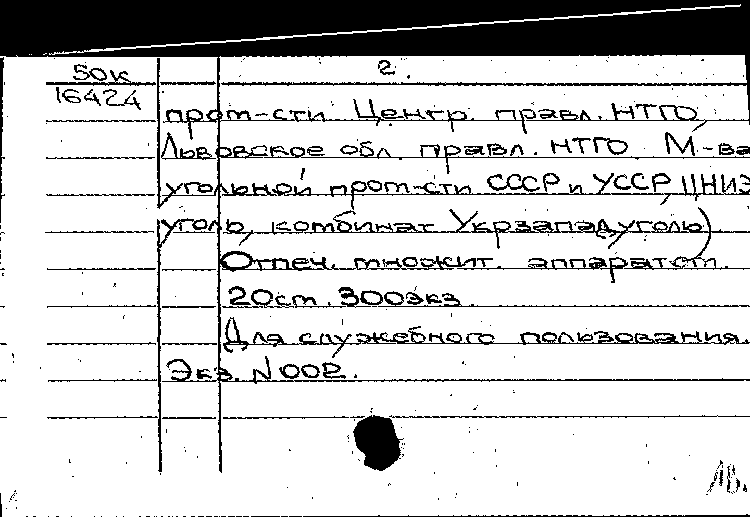 50к 2.
16424
пром-сти. Центр. правл. НТГО,
Львовское обл. правл. НТГО. М-ва
угольной пром-сти СССР и УССР, ЦНИЭ
уголь, комбинат Укрзападуголь)
Отпеч. множит. аппаратом.
20см. 300экз.
Для служебного пользования.
Экз. N002.